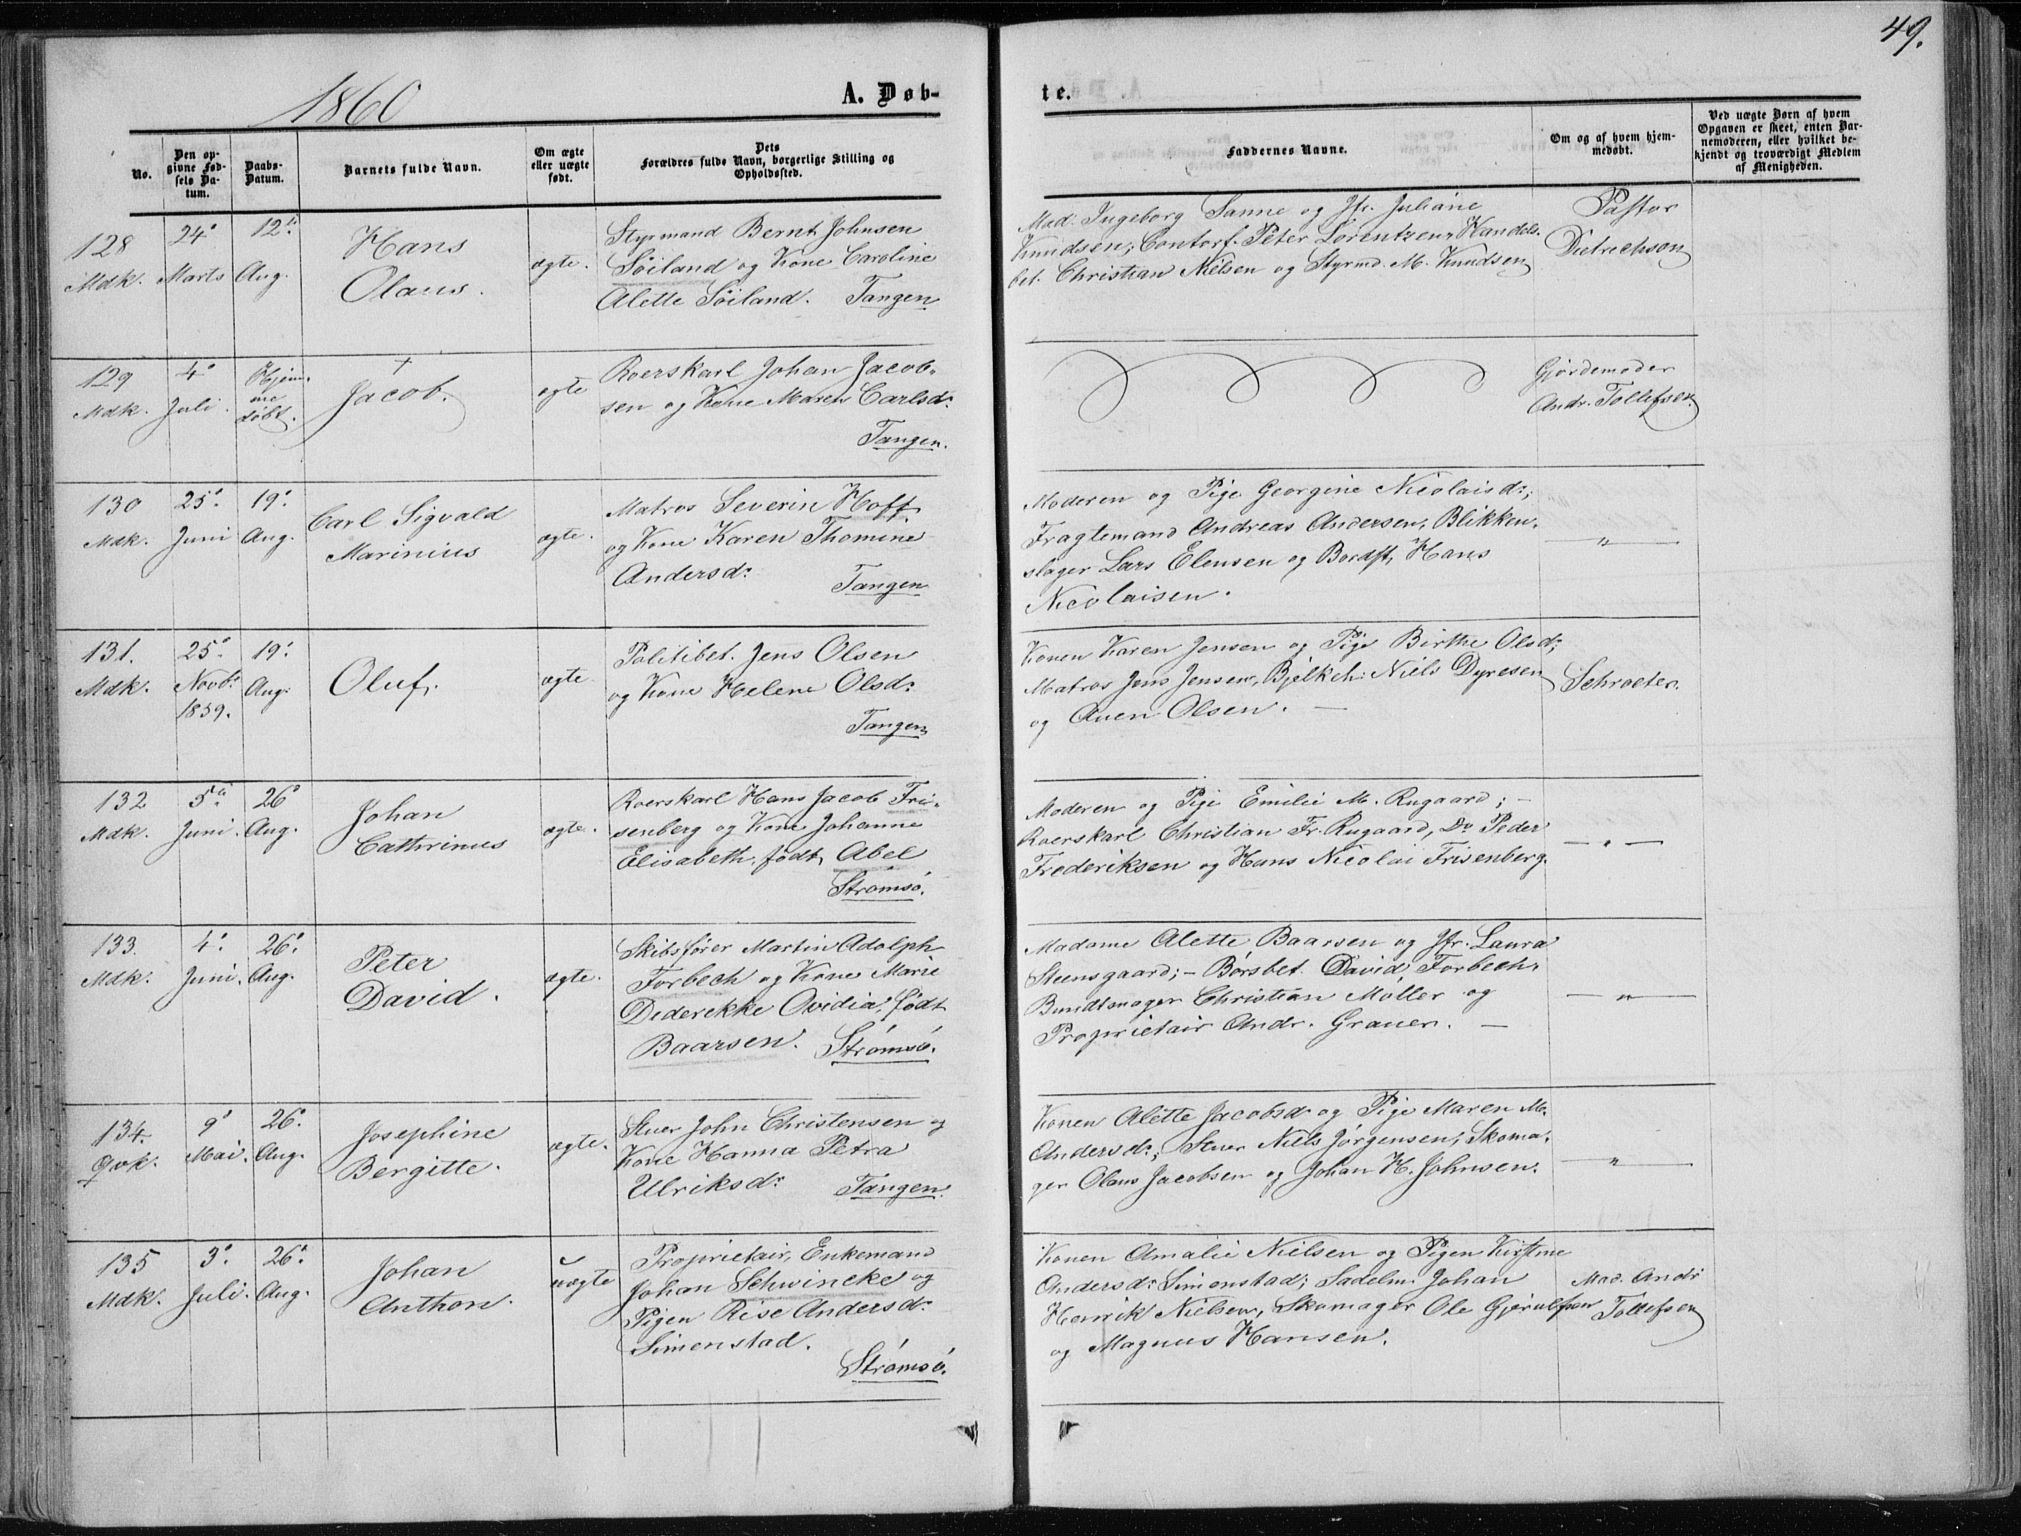 49.
1860
A. Døb-
te.
No.
Den op-
givne Fød-
sels Da-
tum.
Daabs-
Datum.
Barnets fulde Navn.
Om ægte
eller uægte
født.
Dets
Forældres fulde Navn, borgerlige Stilling og
Opholdssted.
Faddernes Navne.
Om og af hvem hjem-
medøbt.
Ved uægte Børn af hvem
Opgaven er skeet, enten Bar-
nemoderen, eller hvilket be-
kjendt og troværdigt Medlem
af Menigheden.
128
Mdk.
24'
Marts
12'
Aug.
Hans
Olaus.
ægte.
Styrmand Bernt Johnsen
Söiland og Kone Caroline
Alette Söiland. Tangen
Mad. Ingeborg Sanne og Jfr. Juliane
Knudsen; Contorf. Peter Lorentzen, Handels-
bet. Christian Nielsen og Styrmd. M. Knudsen
Pastor
Dietrichson
129
Mdk.
4'
Juli.
Hjem-
me
døbt.
+
Jacob.
ægte
Roerskarl Johan Jacob-
sen og Kone Maren Carlsd:
Tangen.
Gjordemoder
Andr. Tollefsen
130
Mdk.
25'
Juni
19'
Aug.
Carl Sigvald
Marinius
ægte.
Matros Severin Hoff
og Kone Karen Thomine
Andersd: Tangen
Moderen og Pige Georgine Nicolaisd:;
Fragtemand Andreas Andersen, Blikken-
slager Lars Elensen og Bordst. Hans
Nicolaisen.
— „ —
131.
Mdk.
25'
Novb:
1859.
19'
Aug.
Oluf.
ægte.
Politibet. Jens Olsen
og Kone Helene Olsd:
Tangen
Konen Karen Jensen og Pige Birthe Olsd:;
Matros Jens Jensen, Bjelkeh: Niels Dyresen
og Auen Olsen. —
Schroeter.
132
Mdk.
5'
Juni.
26'
Aug.
Johan
Cathrinus
ægte.
Roerskarl Hans Jacob Fri-
senberg og Kone Johanne
Elisabeth, født Abel
Strömsö.
Moderen og Pige Emilie M. Rugaard; —
Roerskarl Christian Fr. Rugaard, Do Peder
Frederiksen og Hans Nicolai Frisenberg.
— „ —
133.
Mdk.
4'
Juni.
26'
Aug.
Peter
David.
ægte.
Skibsfører Martin Adolph
Forbech og Kone Marie
Diderekke Ovidia, født
Baarsen. Strömsö.
Madame Alette Baarsen og Jfr. Laura
Steensgaard; — Børsbet. David Forbech,
Bundtmager Christian Møller og
Proprietair Andr. Grauer. —
— „ —
134.
Qvk.
9'
Mai.
26'
Aug.
Josephine
Bergitte.
ægte.
Stuer John Christensen og
Kone Hanna Petra
Ulriksd: Tangen.
Konen Alette Jacobsd: og Pige Maren M.
Andersd:; Stuer Niels Jörgensen, Skoma-
ger Olaus Jacobsen og Johan H. Johnsen.
— „ —
135
Mdk.
3'
Juli.
26'
Aug.
Johan
Anthon.
uægte
Proprietair, Enkemand
Johan Schwincke og
Pigen Rise Andersd:
Simenstad.
Strömsö.
Konen Amalie Nielsen og Pigen Kirstine
Andersd: Simenstad; Sadelm: Johan
Henrik Nielsen, Skomager Ole Gjerulfsen
og Magnus Hansen.
Mad. Andr
Tollefsen